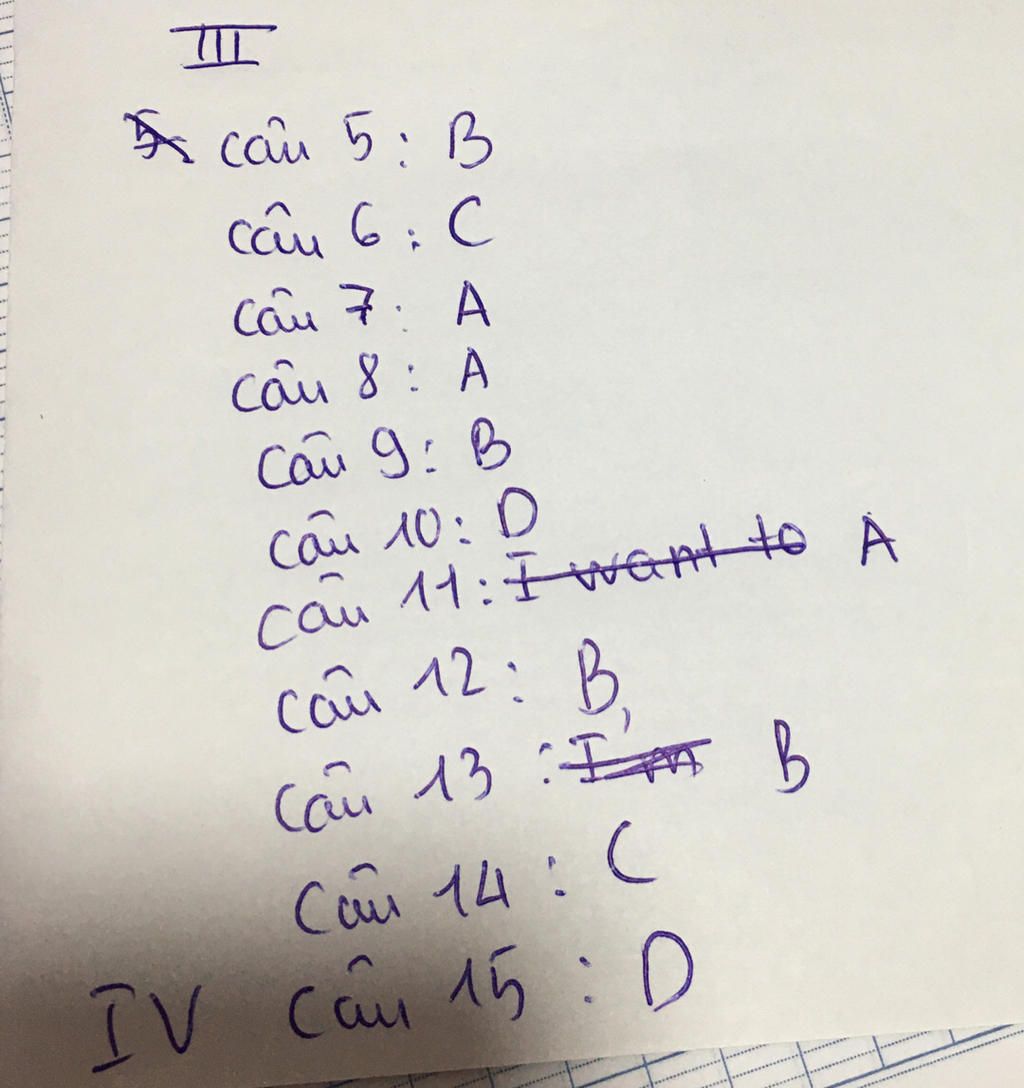 III
câu 5 : B
câu 6 : C
câu 7 : A
câu 8 : A
câu 9 : B
câu 10 : D
câu 11 : I want to A
câu 12 : B,
câu 13 : I'm B
câu 14 : C
IV câu 15 : D